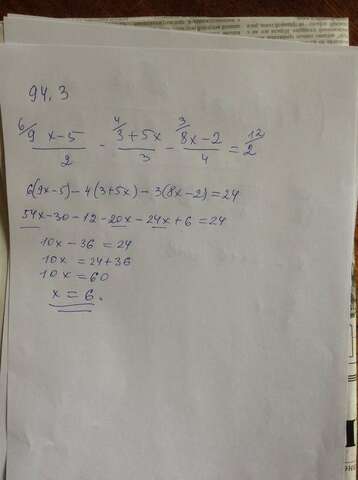 94,3
6/ 9x-5/2 - 4/ 3+5x/3 - 3/ 8x-2/4 = 12/ 2
6(9x-5)-4(3+5x)-3(8x-2)=24
54x-30-12-20x-24x+6=24
10x-36=24
10x=24+36
10x=60
x=6.